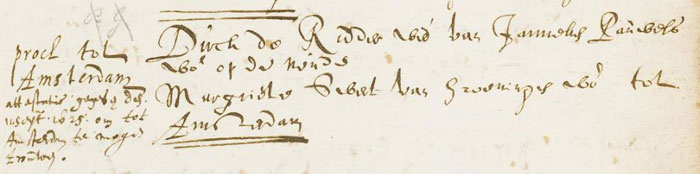 procl tot
Amsterdam
attestatie gegeve den
1625 om tot
Amsterdam te moge
trouwen.
Dirck de Ridder wedr van Jannetie Pauwels
wor op de
Margriete van Groeninge wor tot
Amsterdam